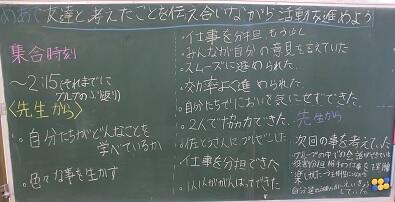 めあて 友達と考えたことを伝え合いながら活動を進めよう
集合時刻
〜2:15(それまでに
グループのふり返り)
〈先生から〉
・自分たちがどんなことを
学べているか
・色々な事を生かす
・仕事を分担 もう少し
・みんなが自分の意見を言えていた
・スムーズに進められた
・効率よく進められた
・自分たちでにおいを気にせずできた
・2人で協力できた
・佐とうさんにプレゼンした
・仕事を分担できた
・1人1人ががんばってできた
先生から
次回の事を考えていた
・グループの中での会話ができていた
・役割分担 相手の仕事を理解